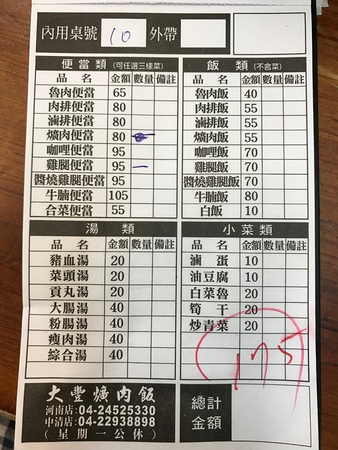 內用桌號 10 外帶
便當類(可任選三樣菜)
品名 金額 數量 備註
魯肉便當 65
肉排便當 80
滷排便當 80
爌肉便當 80
咖哩便當 95
雞腿便當 95 一
醬燒雞腿便當 95
牛腩便當 105
合菜便當 55
飯類(不含菜)
品名 金額 數量 備註
魯肉飯 40
肉排飯 55
滷排飯 55
爌肉飯 55
咖哩飯 70
雞腿飯 70
醬燒雞腿飯 70
牛腩飯 80
白飯 10
湯類
品名 金額 數量 備註
豬血湯 20
菜頭湯 20
貢丸湯 20
大腸湯 40
粉腸湯 40
瘦肉湯 40
綜合湯 40
小菜類
品名 金額 數量 備註
滷蛋 10
油豆腐 10
白菜魯 20
筍干 20
炒青菜 20
175
大豐爌肉飯
河南店:04-24525330
中清店:04-22938898
(星期一公休)
總計
金額